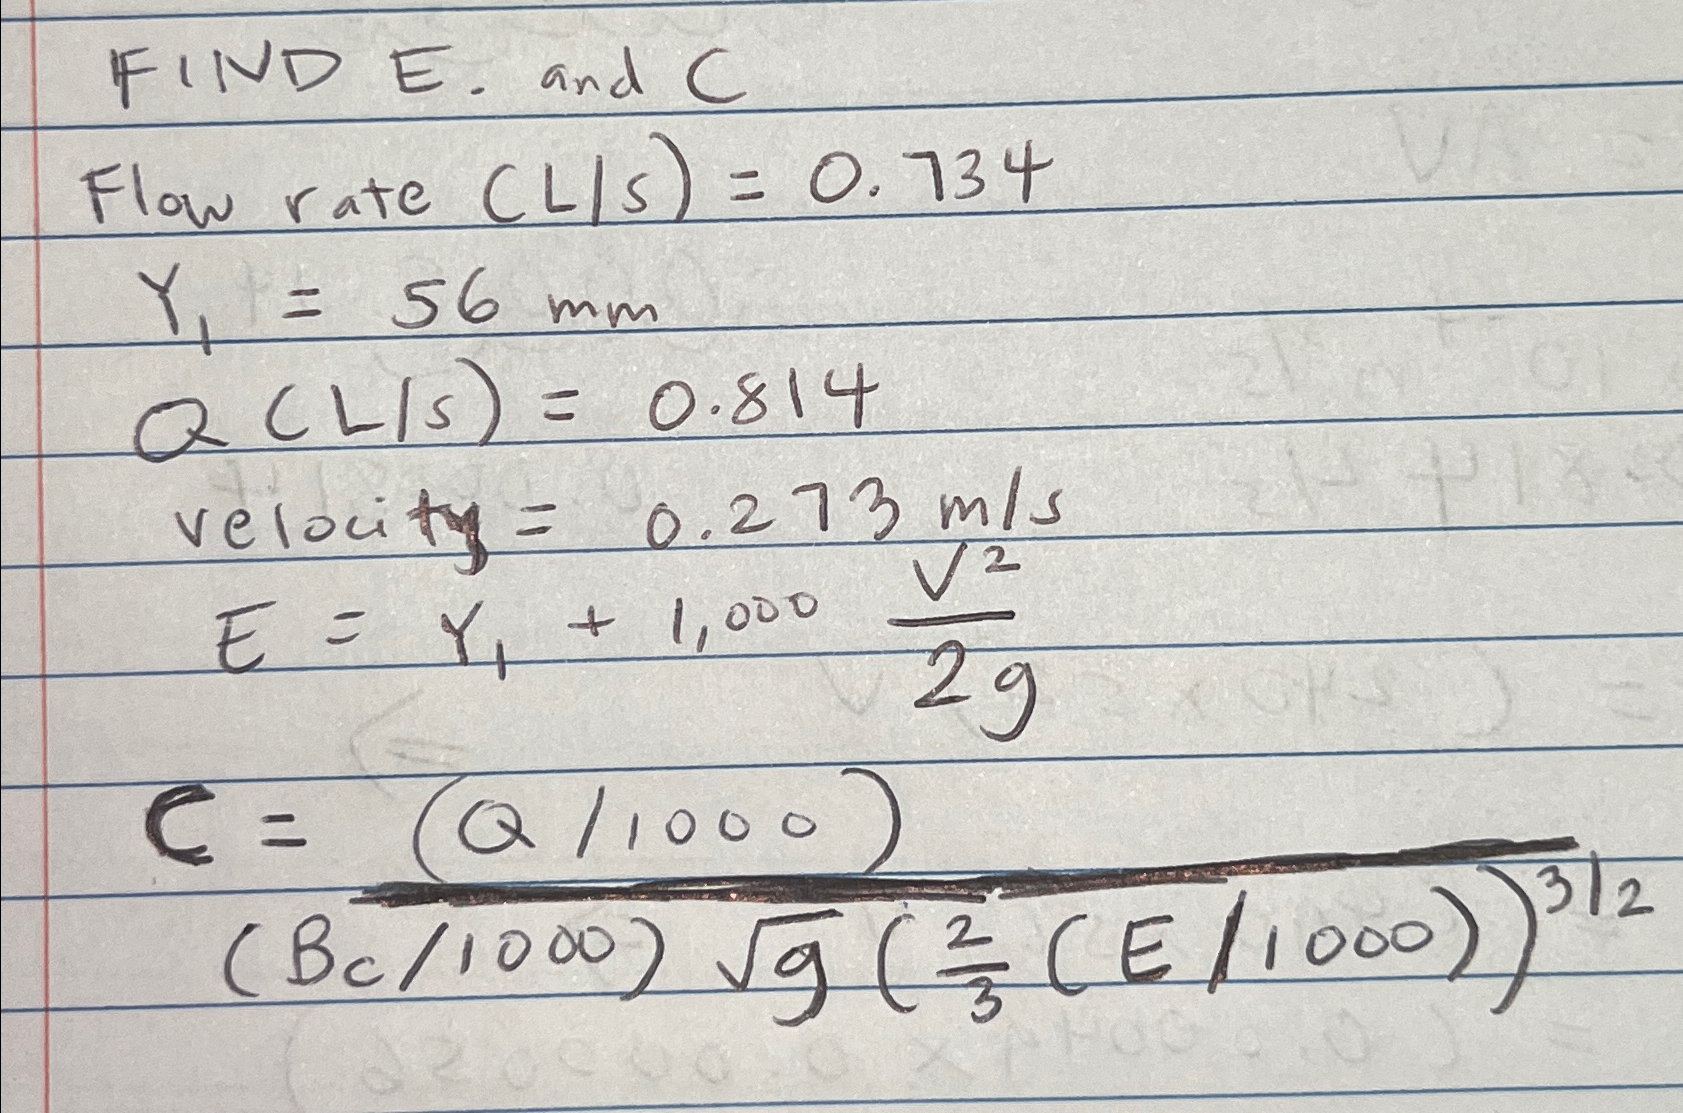 FIND E. and C
Flow rate (L/s) = 0.734
Y₁ = 56 mm
Q (L/s) = 0.814
velocity = 0.273 m/s
E = Y₁ + 1,000 V²/2g
C = (Q/1000)
(Bc/1000) √g (2/3 (E/1000))^3/2